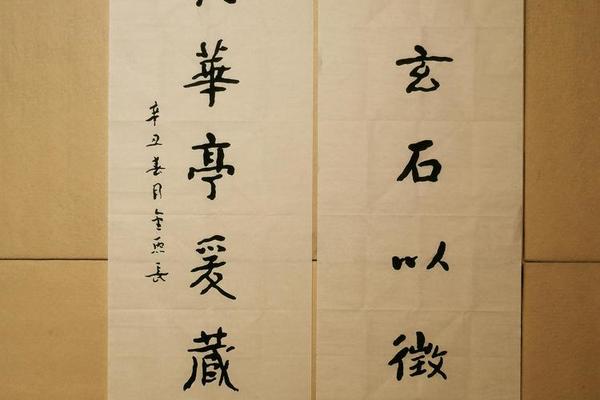 玄石以徵
華亭爰藏
辛丑春月金熙長